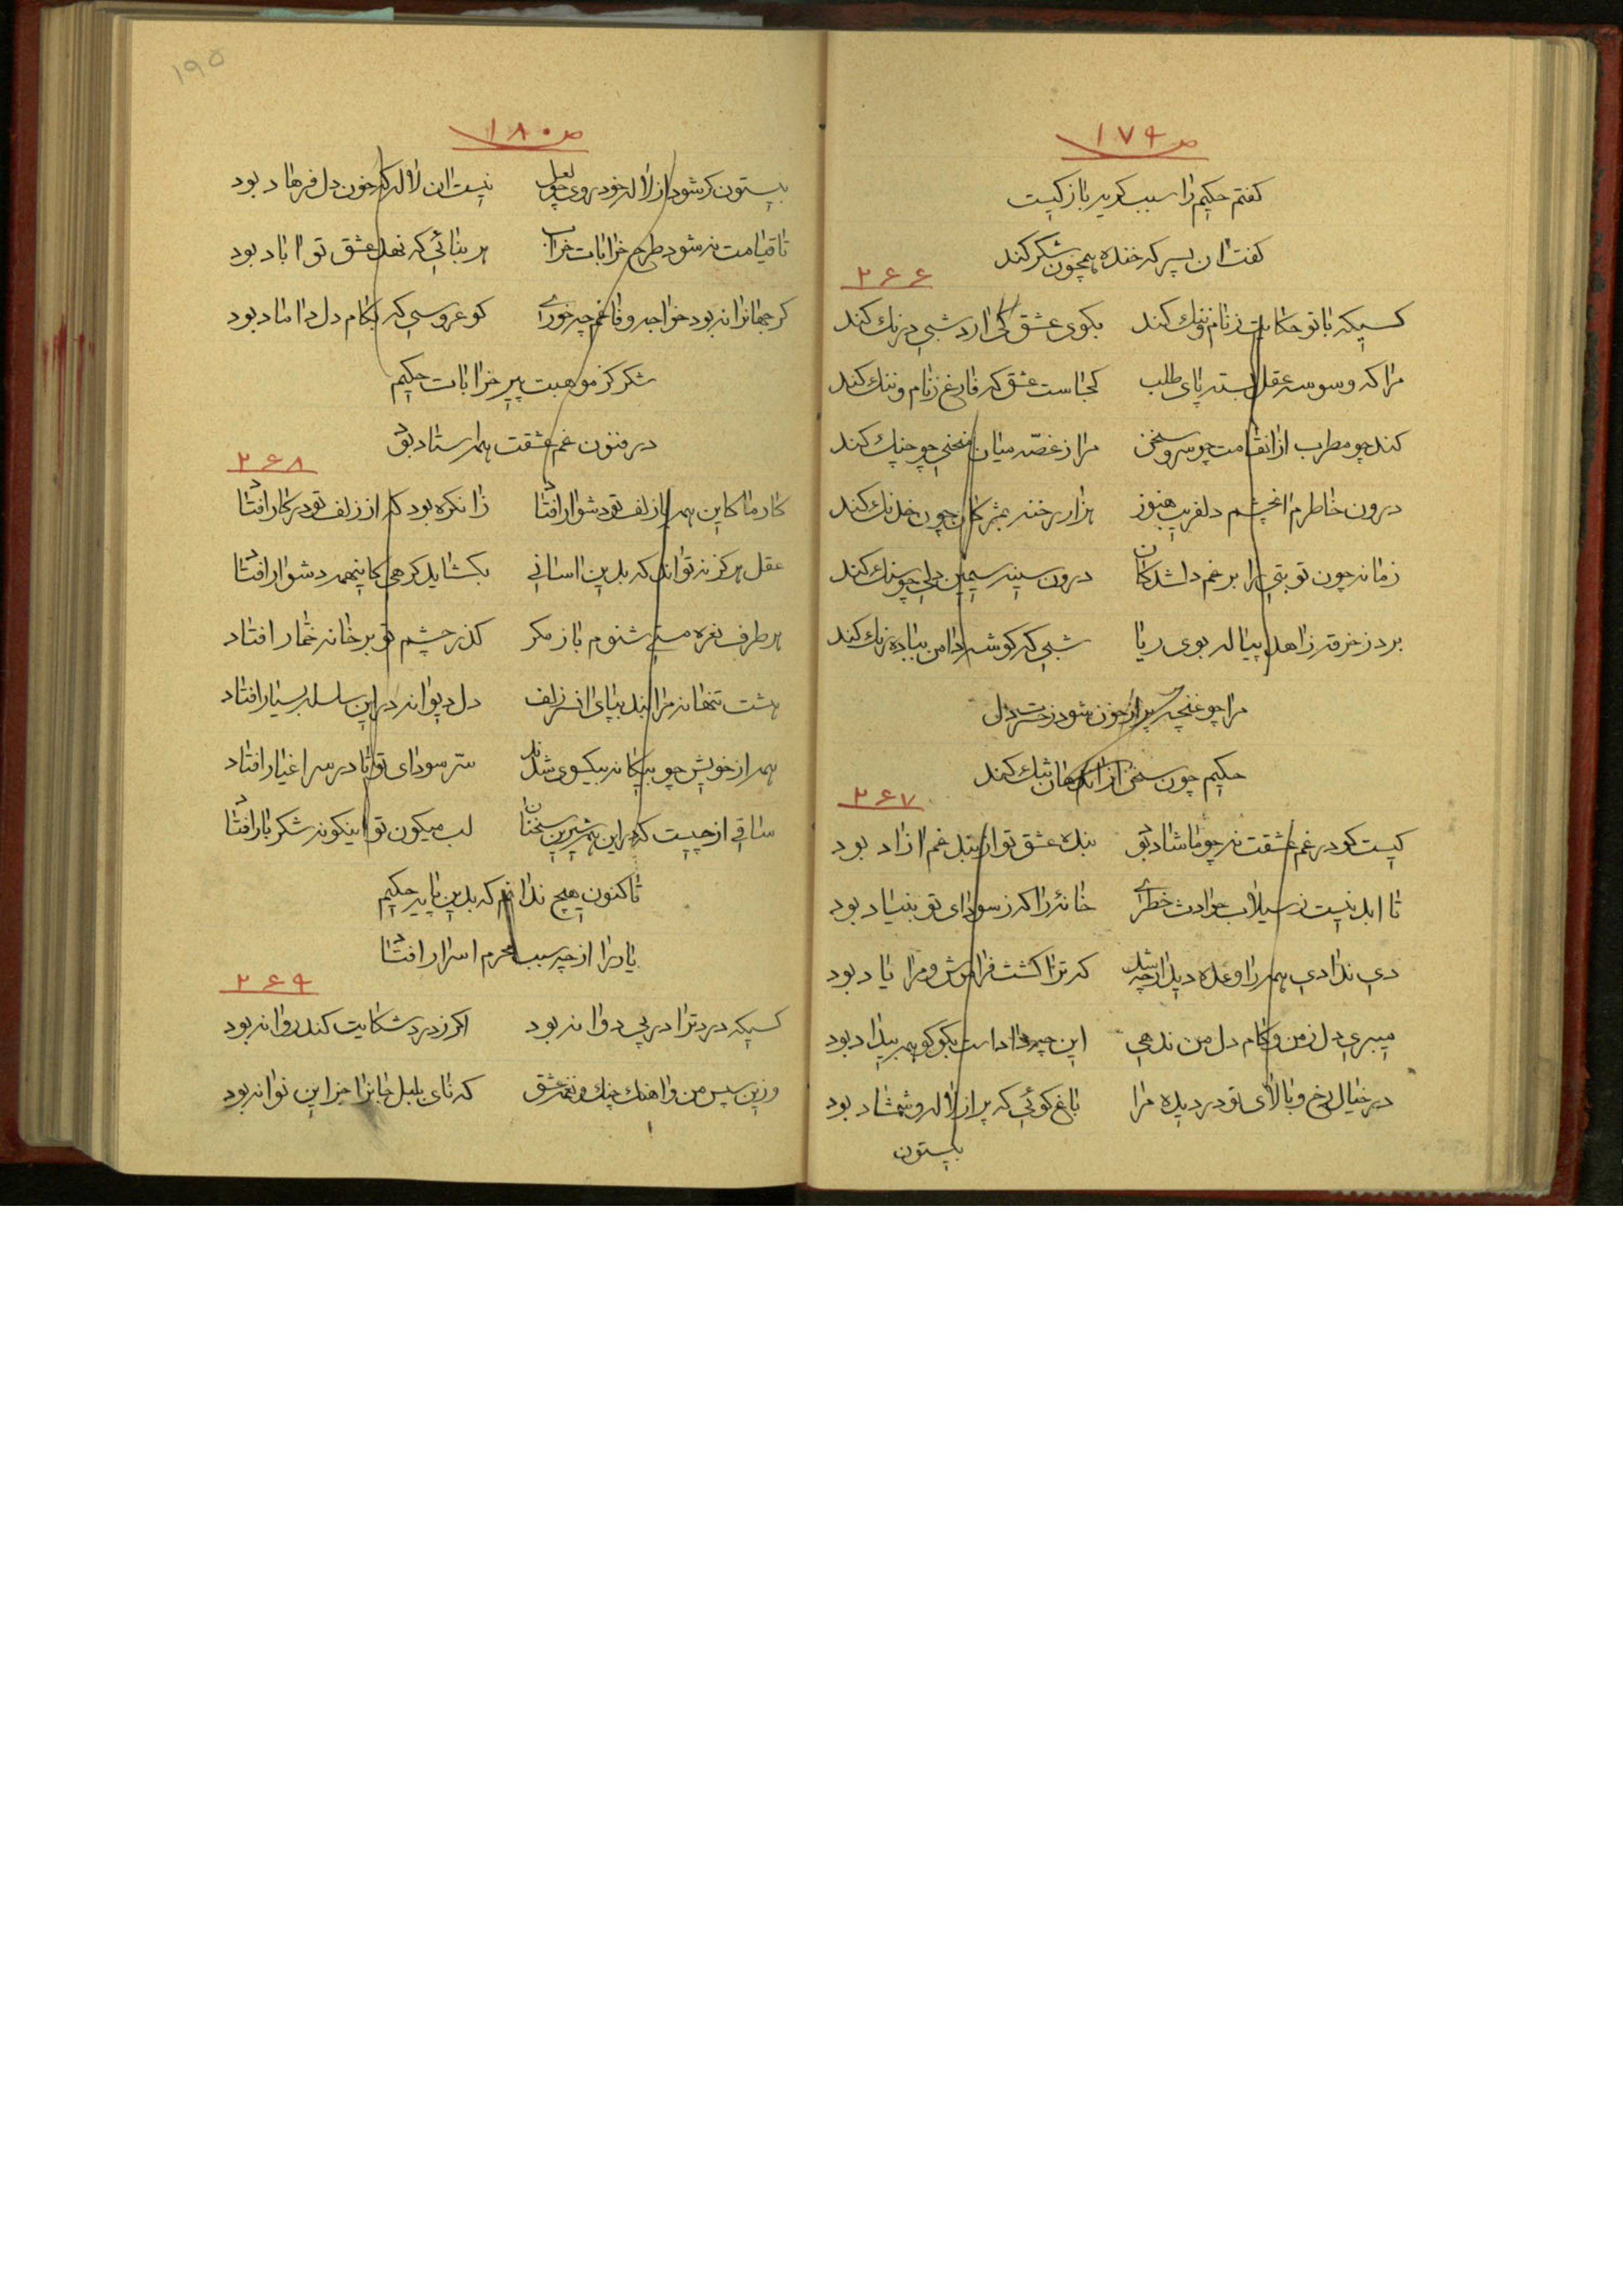 ص ۱۷۹
کفتم حکیم را سبب کریه باز کیست
کفت ان پسر که خنده همچون شکر کند
۲۶۶
کسیکه با تو حکایت ز نام و ننك کند بکوی عشق کی ارد شبی درنك کند
مرا که وسوسه عقل بسته پای طلب کجاست عشق که فارغ ز نام و ننك کند
کند چو مطرب از انقامت چو سرو سخن مرا ز غصه میان منحنی چو چنك کند
درون خاطرم انچشم دلفریب هنوز هزار رخنه بمژکان چون خدنك کند
زمانه چون تو بتی را برغم دلشدکان درون سینه سیمین دلی چو سنك کند
برد ز خرقه زاهد پیاله بوی ریا شبی که کوشه دامن بباده رنك کند
مرا چو غنچه پر از خون شود ز حسرت دل
حکیم چون سخن از اندهان تنك کند
۲۶۷
کیست کو در غم عشقت نه چو ما شاد بود بنده عشق تو از بند غم ازاد بود
تا ابد نیست ز سیلاب حوادث خطری خانهٔ را که ز سودای تو بنیاد بود
دی ندادی همه را وعده دیدار چه شد که ترا کشت فراموش و مرا یاد بود
میبری دل ز من و کام دل من ندهی این چه داد است بکو کو همه بیداد بود
در خیال رخ و بالای تو در دیده مرا باغ کوئی که پر از لاله و شمشاد بود
بیستون
۱۹۵
ص ۱۸۰
بیستون کر شود از لاله خود روی چو لعل نیست ان لاله که خون دل فرهاد بود
تا قیامت نه شود طرح خرابات خراب هر بنائی که نهد عشق تو اباد بود
کر جهانرا نه بود خواجه وفا غم چه خوری کو عروسی که بکام دل داماد بود
شکر کز موهبت پیر خرابات حکیم
در فنون غم عشقت همه استاد بود
۲۶۸
کار ما کاین همه از زلف تو دشوار افتاد زان کره بود که از زلف تو در کار افتاد
عقل هرکز نه تواند که بدین اسانی بکشاید کرهی کاینهمه دشوار افتاد
هر طرف نعره مستی شنوم باز مکر کذر چشم تو بر خانه خمار افتاد
هست تنها نه مرا بند بپای از سر زلف دل دیوانه در این سلسله بسیار افتاد
همه از خویش چو بیکانه بیکسوی شدند سر سودای تو تا در سر اغیار افتاد
ساقی از چیست که در این همه شیرین سخنان لب میکون تو اینکونه شکر بار افتاد
تا کنون هیچ ندانم که بدین پایه حکیم
یار را از چه سبب محرم اسرار افتاد
۲۶۹
کسیکه درد ترا در پی دوا نه بود اکر ز درد شکایت کند روا نه بود
وزین سپس من و اهنك چنك و نغمه عشق که نای بلبل جانرا جز این نوا نه بود